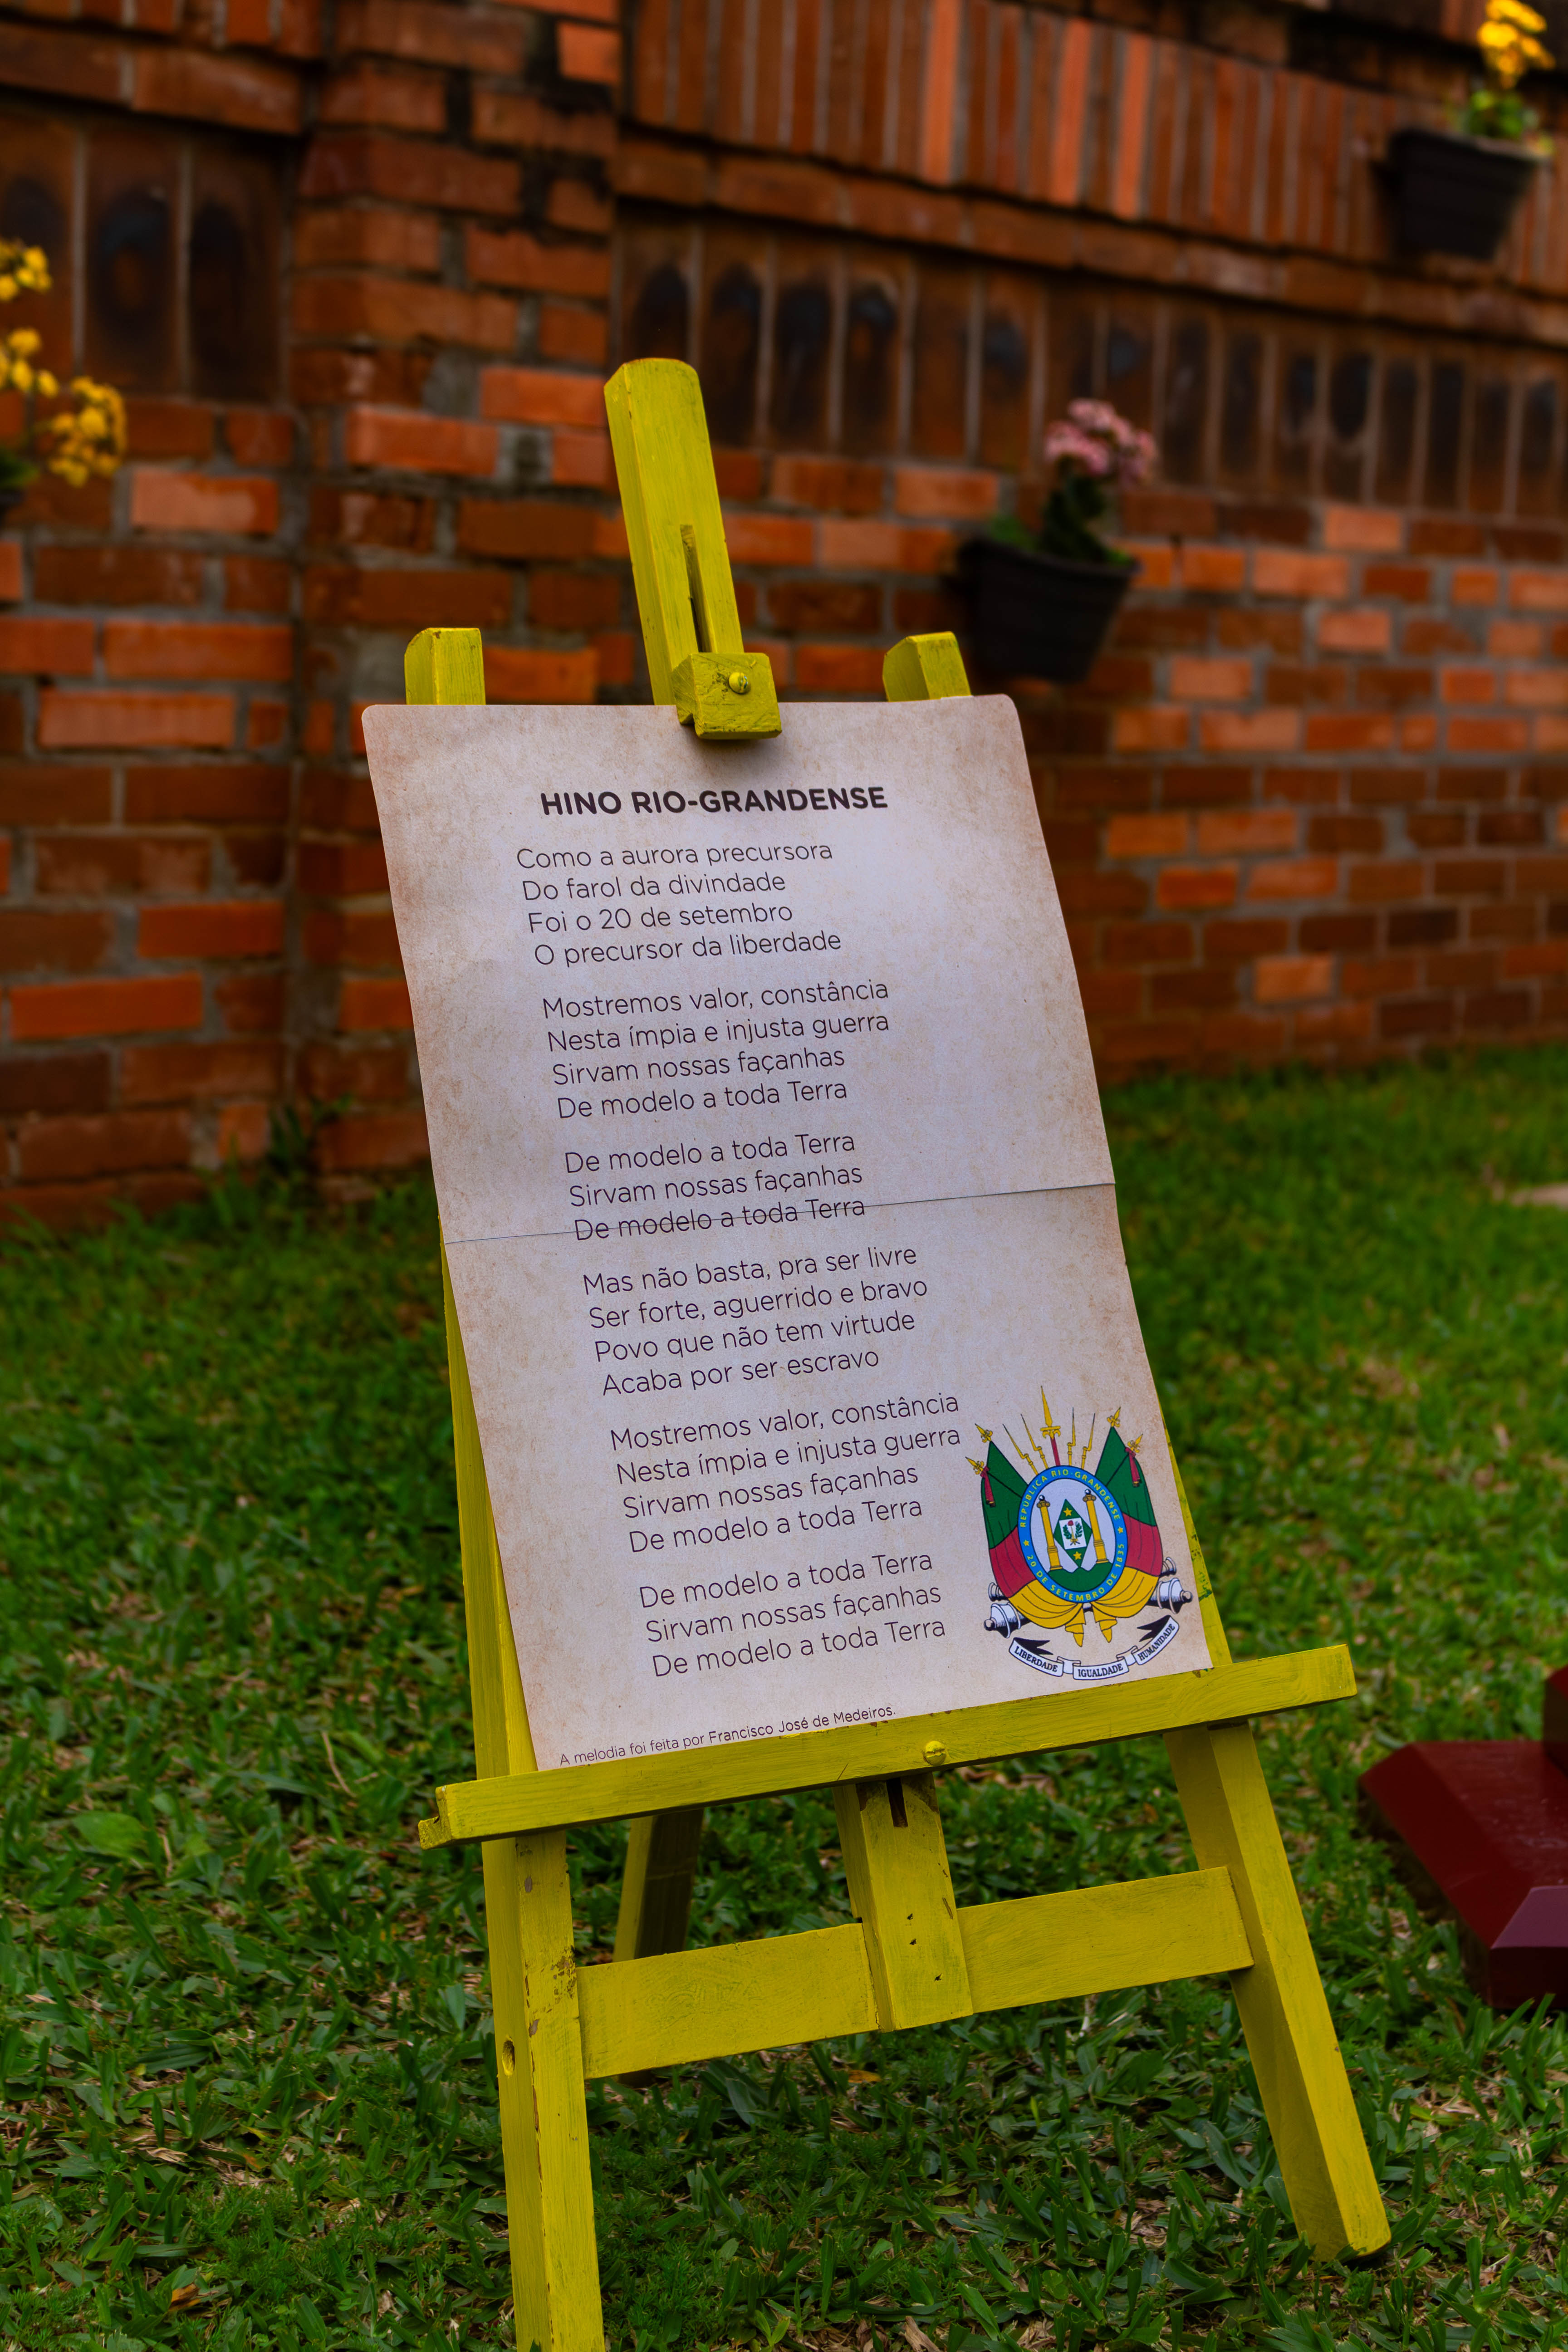 HINO RIO-GRANDENSE
Como a aurora precursora
Do farol da divindade
Foi o 20 de setembro
O precursor da liberdade
Mostremos valor, constância
Nesta ímpia e injusta guerra
Sirvam nossas façanhas
De modelo a toda Terra
De modelo a toda Terra
Sirvam nossas façanhas
De modelo a toda Terra
Mas não basta, pra ser livre
Ser forte, aguerrido e bravo
Povo que não tem virtude
Acaba por ser escravo
Mostremos valor, constância
Nesta ímpia e injusta guerra
Sirvam nossas façanhas
De modelo a toda Terra
De modelo a toda Terra
Sirvam nossas façanhas
De modelo a toda Terra
REPÚBLICA RIO-GRANDENSE
20 DE SETEMBRO DE 1835
LIBERDADE IGUALDADE HUMANIDADE
A melodia foi feita por Francisco José de Medeiros.